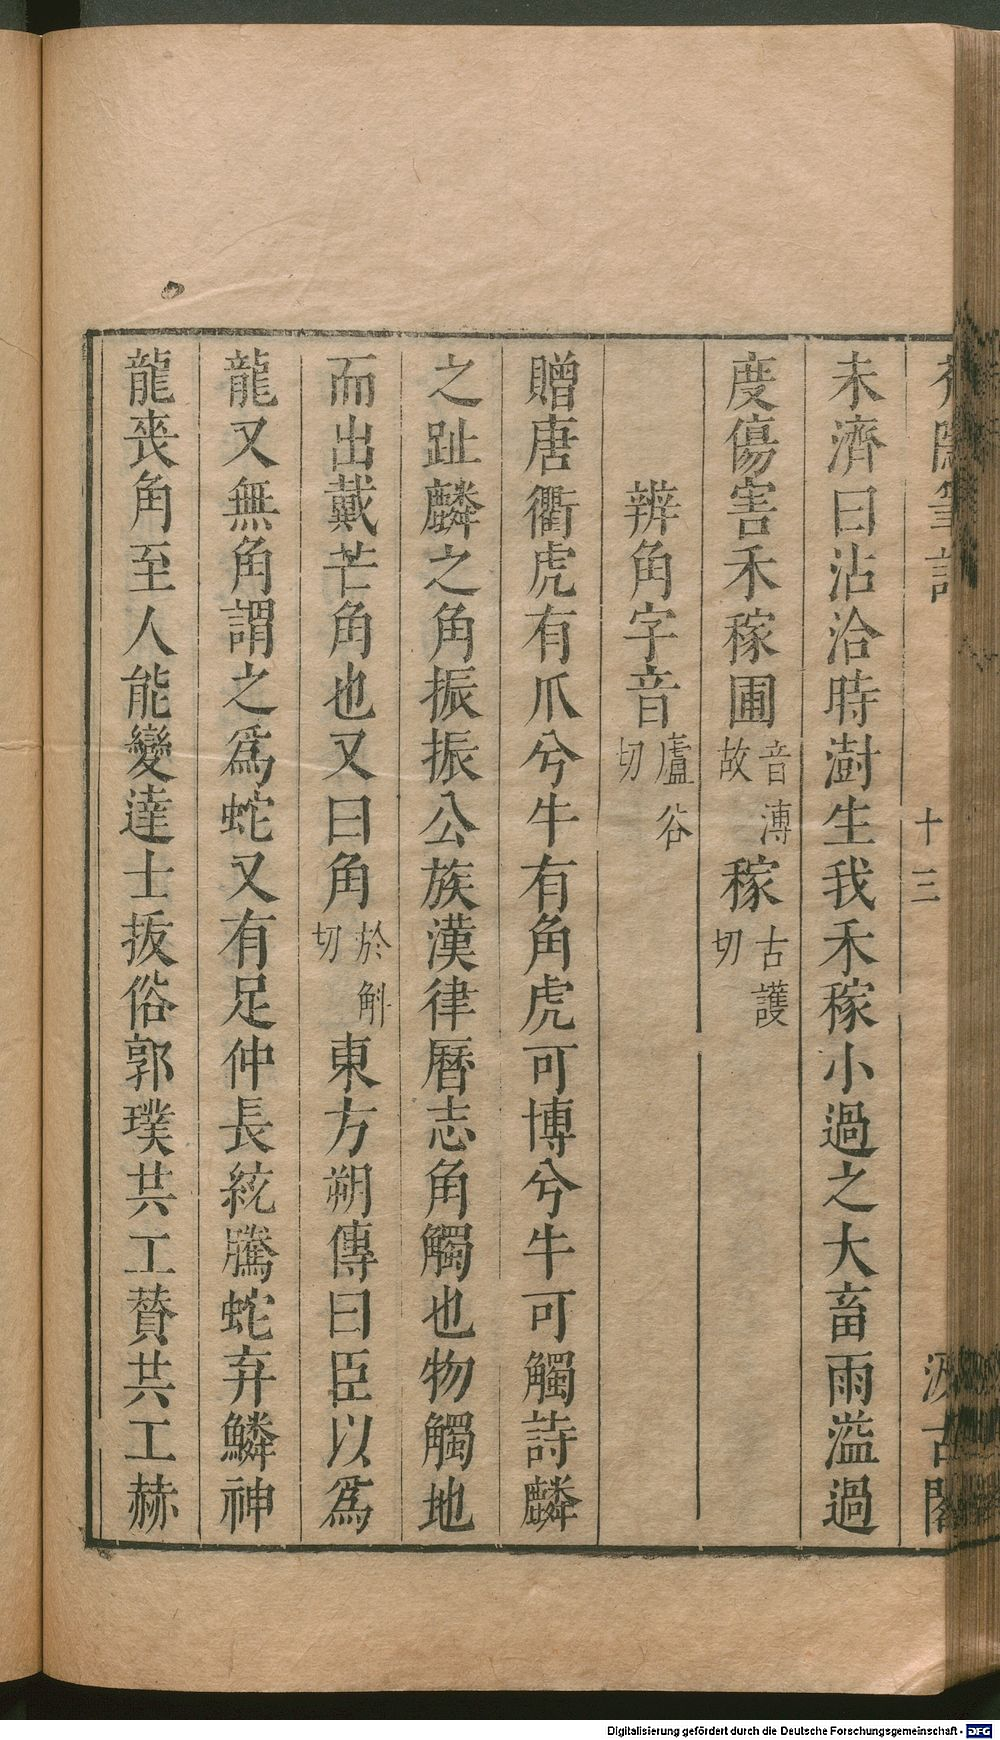 未濟曰沾洽時澍生我禾稼小過之大畜雨溢過
度傷害禾稼圃音溥故稼古護切
辨角字音盧谷切
贈唐衢虎有爪兮牛有角虎可博兮牛可觸詩麟
之趾麟之角振振公族漢律曆志角觸也物觸地
而出戴芒角也又曰角於斛切東方朔傳曰臣以爲
龍又無角謂之爲蛇又有足仲長統騰蛇弃鱗神
龍喪角至人能變達士拔俗郭璞共工贊共工赫
十三
汲古閣
Digitalisierung gefördert durch die Deutsche Forschungsgemeinschaft - DFG